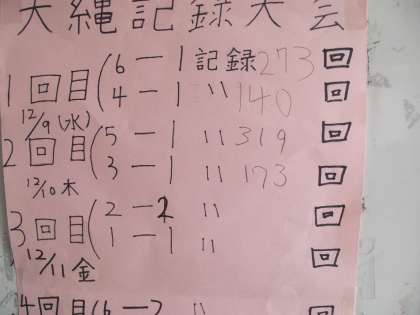 大縄記録大会
1回目(6-1 記録273回
4-1 〃 140 回
12/9(水)
2回目(5-1 〃 319 回
3-1 〃 173 回
12/10木
3回目(2-2 〃 回
1-1 〃 回
12/11金
4回目(6-2 〃 回